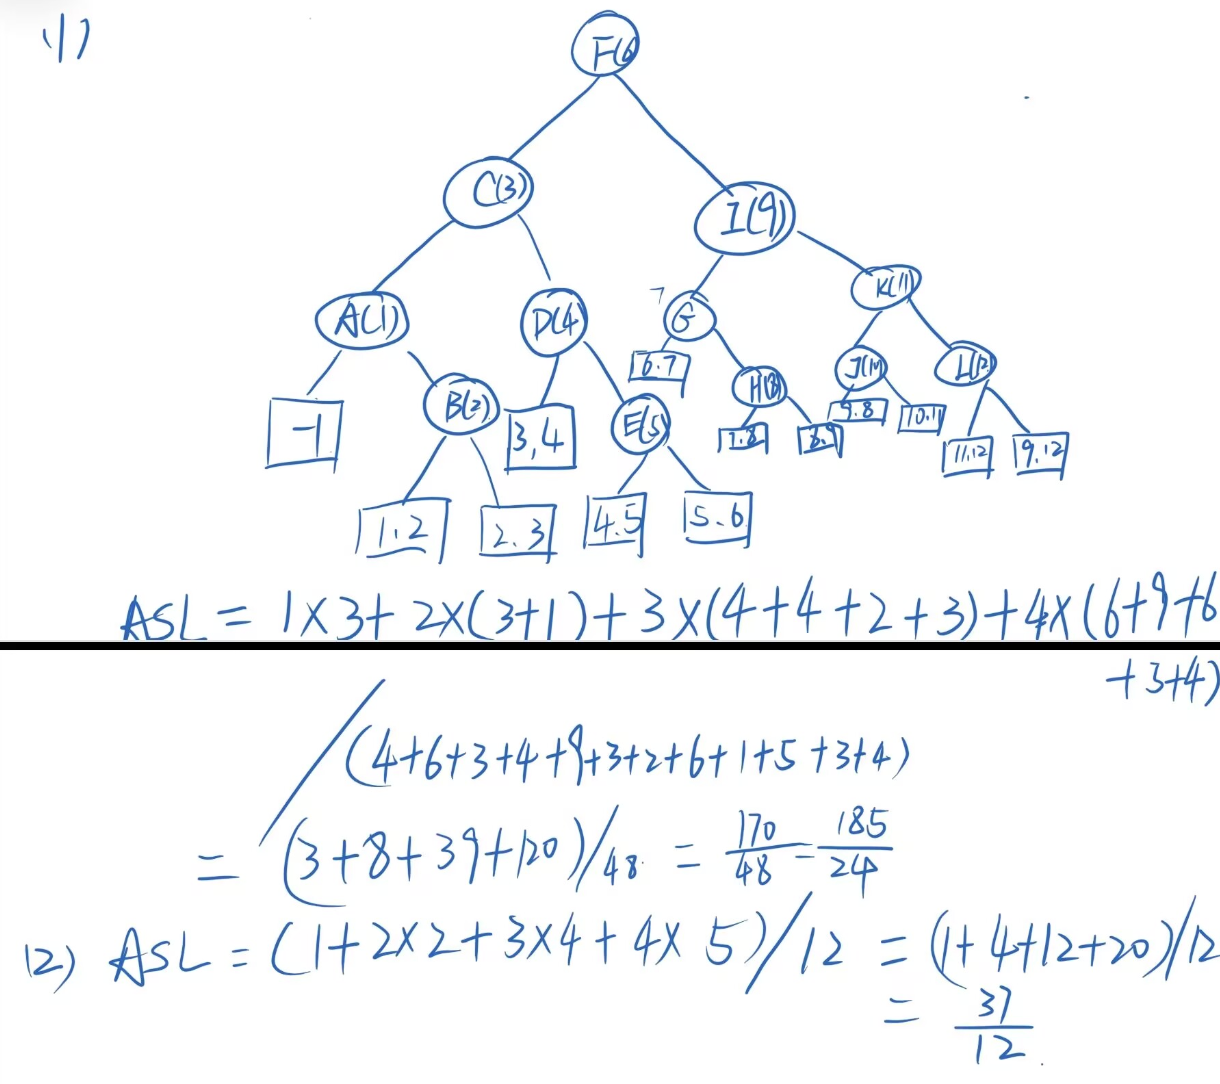 (1)
F(6)
C(3)
I(9)
A(1)
D(4)
7
G
K(11)
-1
B(2)
3,4
E(5)
6.7
H(8)
J(10)
L(12)
7.8
8.9
9.8
10.11
11.12
9.12
1.2
2.3
4.5
5.6
ASL = 1×3+ 2×(3+1)+3×(4+4+2+3)+4×(6+9+6
+3+4)
/(4+6+3+4+9+3+2+6+1+5+3+4)
= (3+8+39+120)/48 = 170/48 = 185/24
(2) ASL = (1+2×2+3×4+4×5)/12 = (1+4+12+20)/12
= 37/12